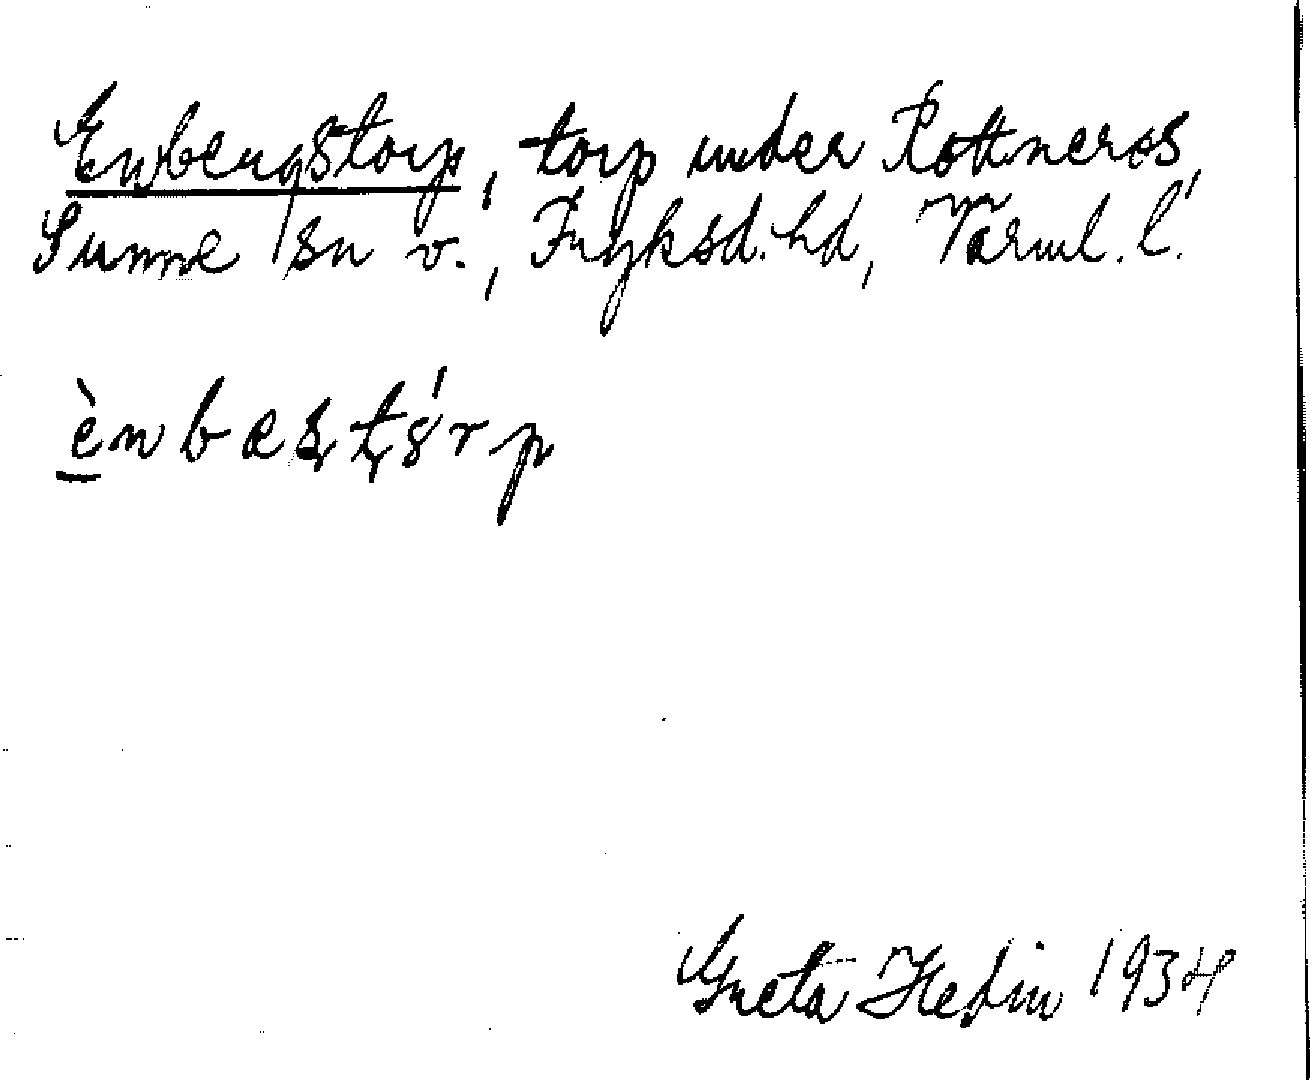 Enbergstorp, torp under Rottneros,
Sunne sn v., Fryksd. hd, Värml. l.
Greta Hedin 1934